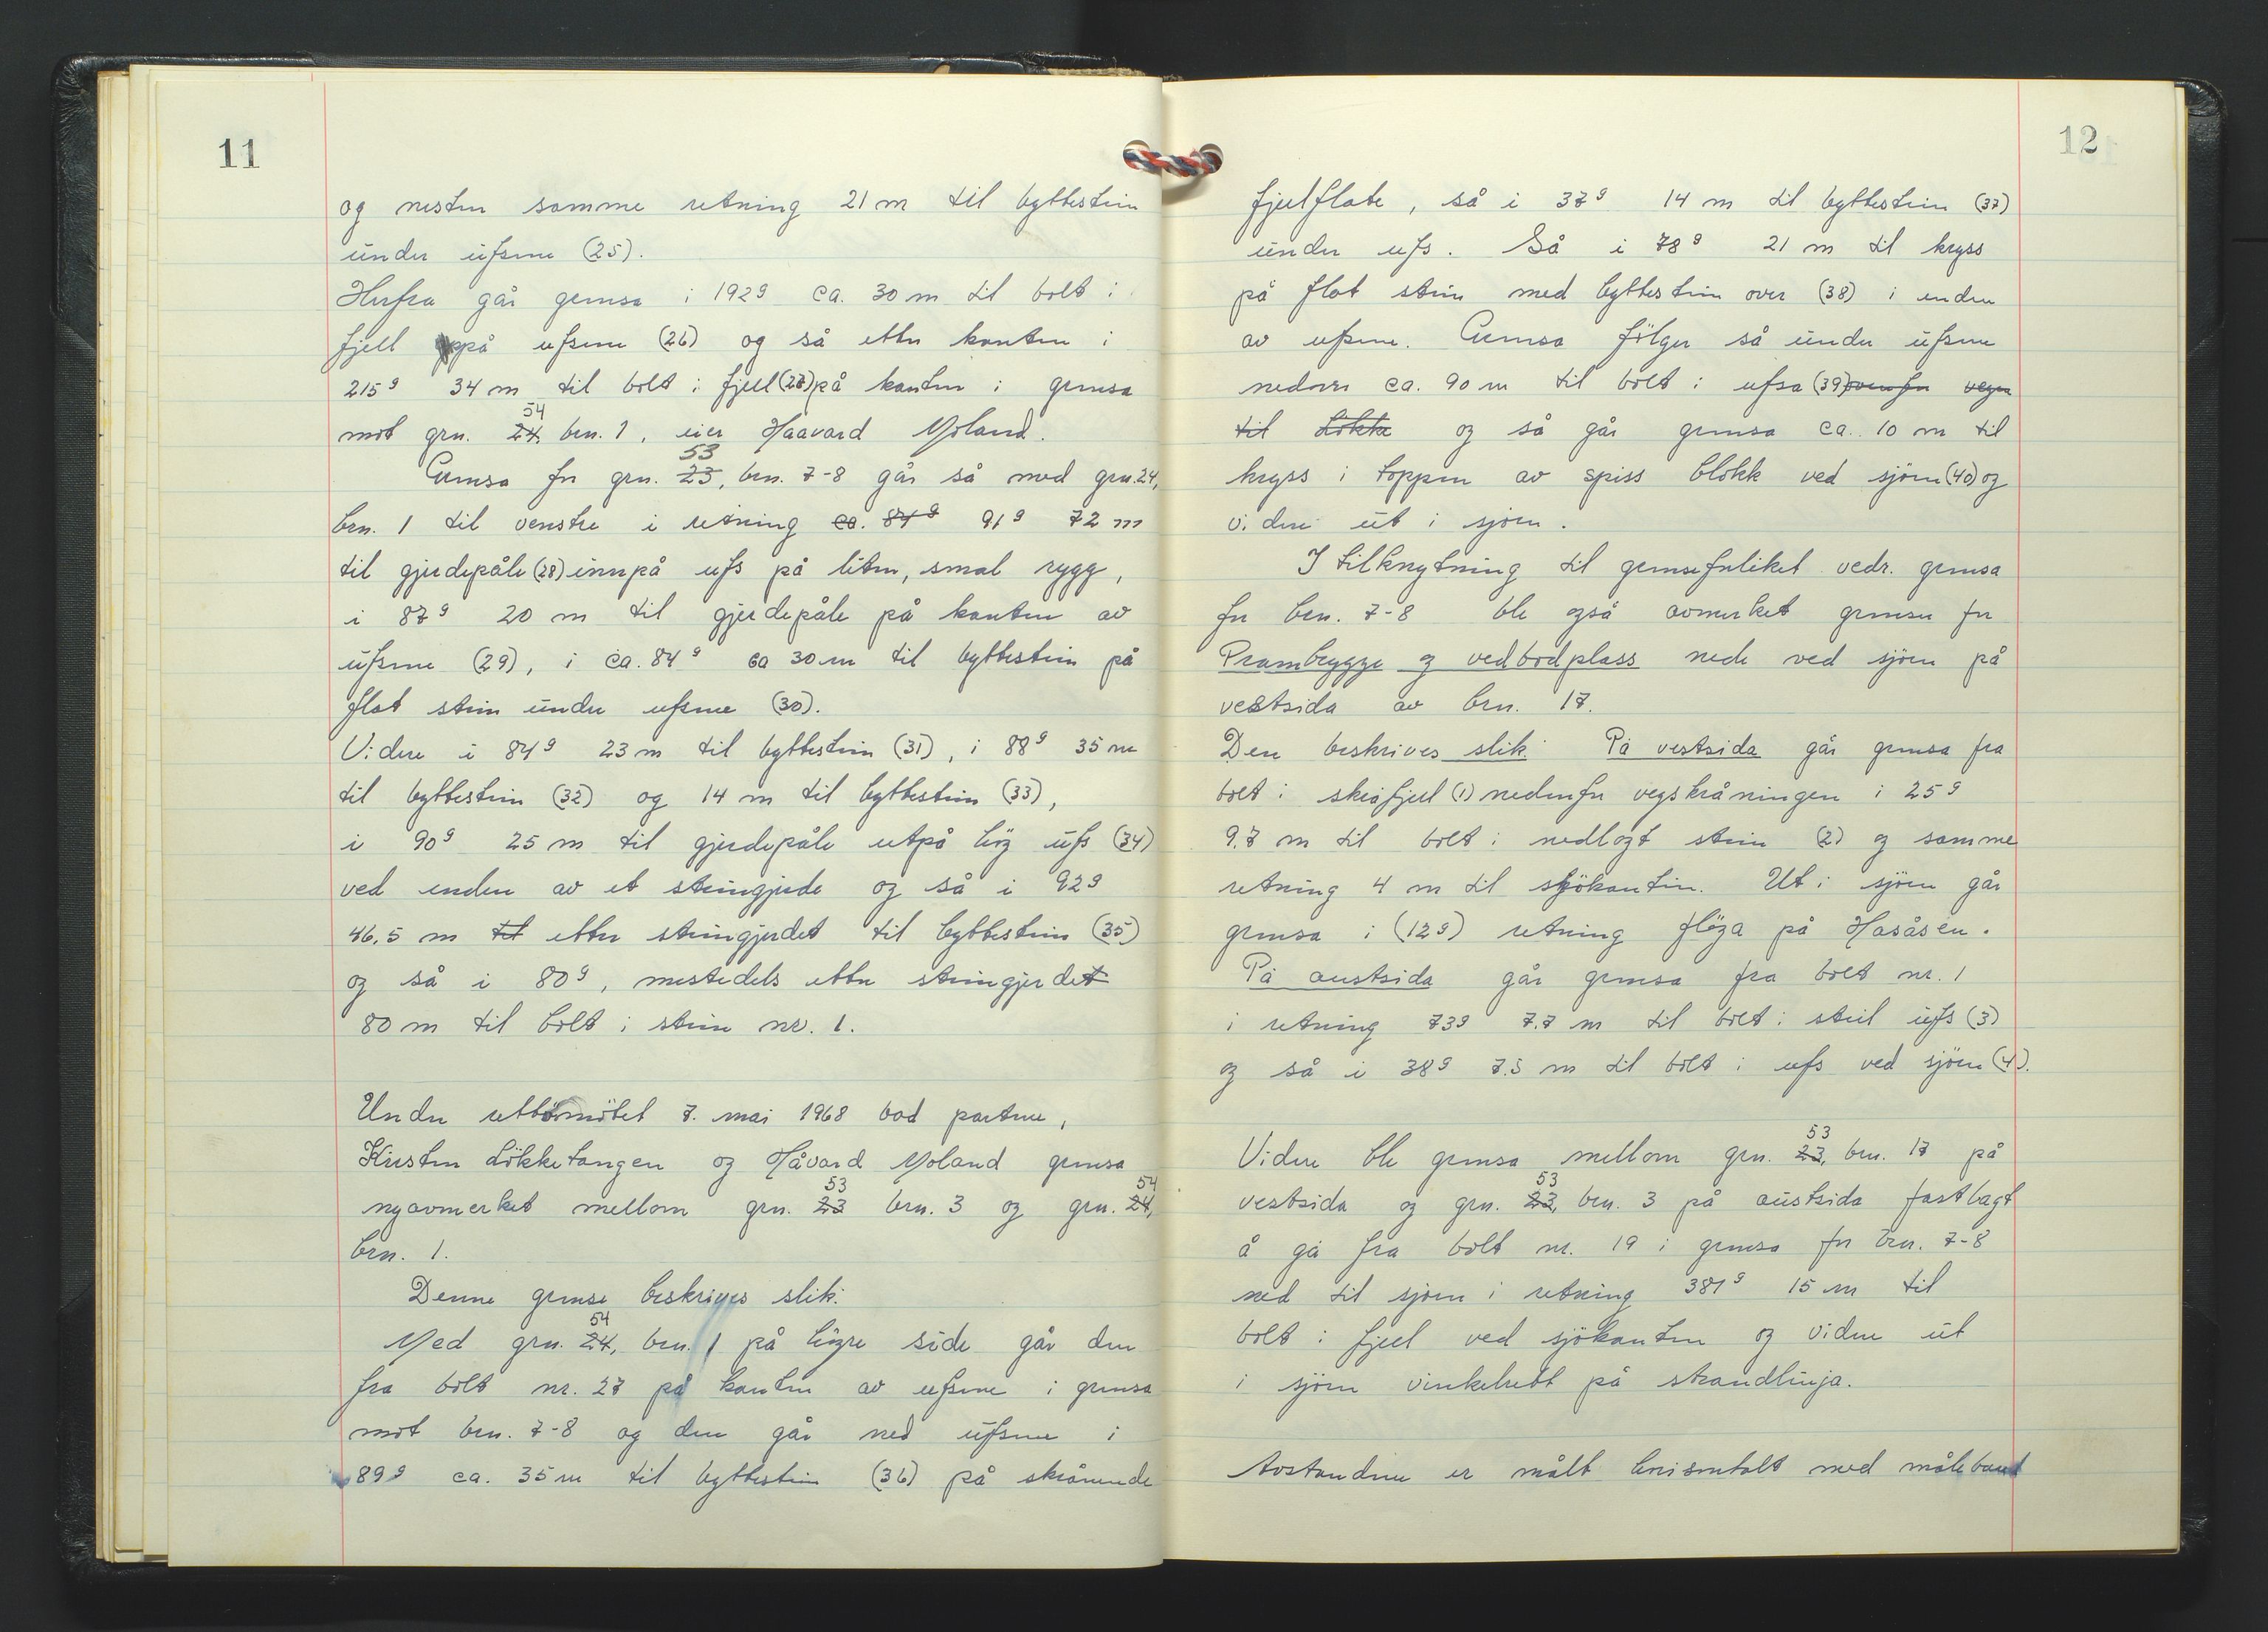 11
og nesten samme retning 21 m til byttestein
under ufsene (25).
Herfra går grensa i 192g ca. 30 m til bolt i
fjell på ufsene (26) og så etter kanten i
215g 34 m til bolt i fjell (27) på kanten i grensa
54
mot grn. 24, brn. 1, eier Haavard Moland.
53
Grensa for grn. 23, brn. 7-8 går så med grn. 24,
brn. 1 til venstre i retning ca. 84g 91g 72 m
til gjerdepåle (28) innpå ufs på liten, smal rygg,
i 87g 20 m til gjerdepåle på kanten av
ufsene (29), i ca. 84g ca 30 m til byttestein på
flat stein under ufsene (30).
Videre i 84g 23 m til byttestein (31), i 88g 35 m
til byttestein (32) og 14 m til byttestein (33),
i 90g 25 m til gjerdepåle utpå høg ufs (34)
ved enden av et steingjerde og så i 92g
46,5 m til etter steingjerdet til byttestein (35)
og så i 80g, mestedels etter steingjerdet
80 m til bolt i stein nr. 1.
Under rettsmøtet 7. mai 1968 bad partene,
Kirsten Løkketangen og Håvard Moland grensa
53 54
nyavmerket mellom grn. 23 brn. 3 og grn. 24,
brn. 1.
Denne grense beskrives slik:
54
Med grn. 24, brn. 1 på høgre side går den
fra bolt nr. 27 på kanten av ufsene i grensa
mot brn. 7-8 og den går ned ufsene i
89g ca. 35 m til byttestein (36) på skrånende
12
fjellflate, så i 37g 14 m til byttestein (37)
under ufs. Så i 78g 21 m til kryss
på flat stein med byttestein over (38) i enden
av ufsene. Grensa følger så under ufsene
nedover ca. 90 m til bolt i ufsa (39) ovenfor vegen
til Løkke og så går grensa ca. 10 m til
kryss i toppen av spiss blokk ved sjøen (40) og
videre ut i sjøen.
I tilknytning til grenseforliket vedr. grensa
for brn. 7-8 ble også avmerket grensen for
Prambrygge og vedbodplass nede ved sjøen på
vestsida av brn. 17.
Den beskrives slik: På vestsida går grensa fra
bolt i skråfjell (1) nedenfor vegskråningen i 25g
9.7 m til bolt i nedlagt stein (2) og samme
retning 4 m til sjøkanten. Ut i sjøen går
grensa i (12g) retning fløga på Hasåsen.
På austsida går grensa fra bolt nr. 1
i retning 73g 7.7 m til bolt i steil ufs (3)
og så i 38g 7.5 m til bolt i ufs ved sjøen (4).
53
Videre ble grensa mellom grn. 23, brn. 17 på
53
vestsida og grn. 23, brn. 3 på austsida fastlagt
å gå fra bolt nr. 19 i grensa for brn. 7-8
ned til sjøen i retning 381g 15 m til
bolt i fjell ved sjøkanten og videre ut
i sjøen vinkelrett på strandlinja.
Avstandene er målt horisontalt med måleband